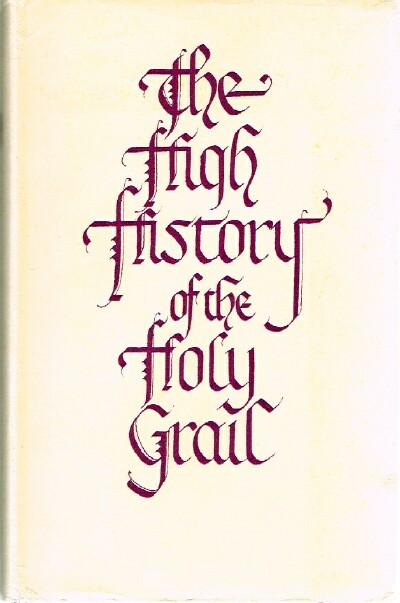 The
High
History
of the
Holy
Grail